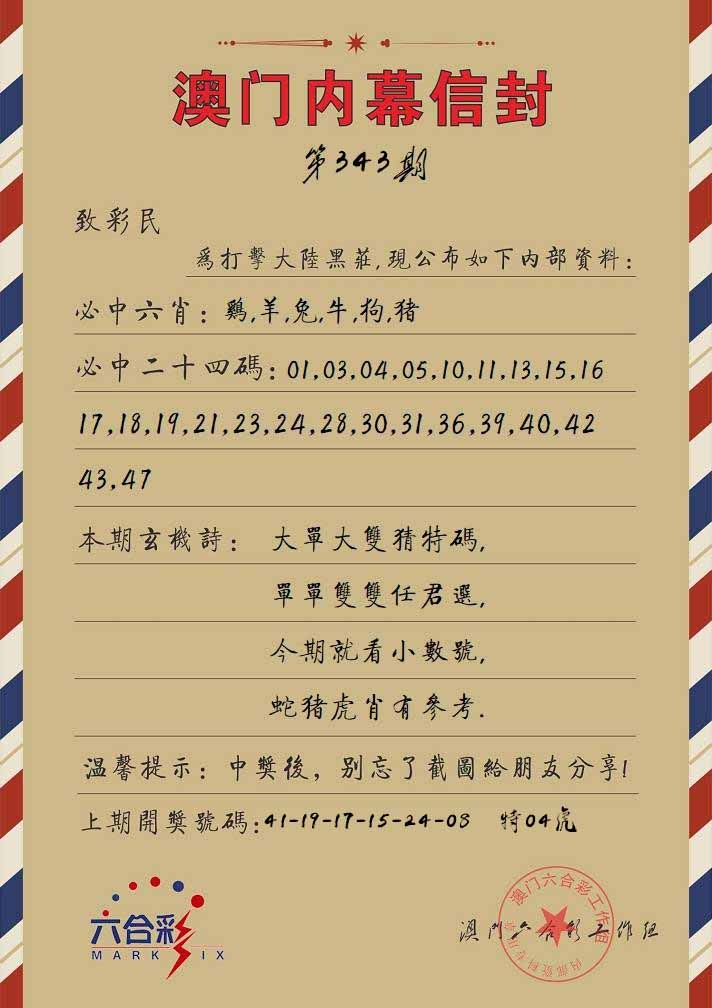 澳门内幕信封
第343期
致彩民
為打擊大陸黑莊,現公布如下内部資料:
必中六肖:鷄,羊,兔,牛,狗,猪
必中二十四碼:01,03,04,05,10,11,13,15,16
17,18,19,21,23,24,28,30,31,36,39,40,42
43,47
本期玄機詩: 大單大雙猜特碼,
單單雙雙任君選,
今期就看小數號,
蛇猪虎肖有參考.
温馨提示:中獎後,别忘了截圖給朋友分享!
上期開獎號碼:41-19-17-15-24-08 特04虎
六合彩
MARK SIX
澳门六合彩工作组
澳门六合彩工作组